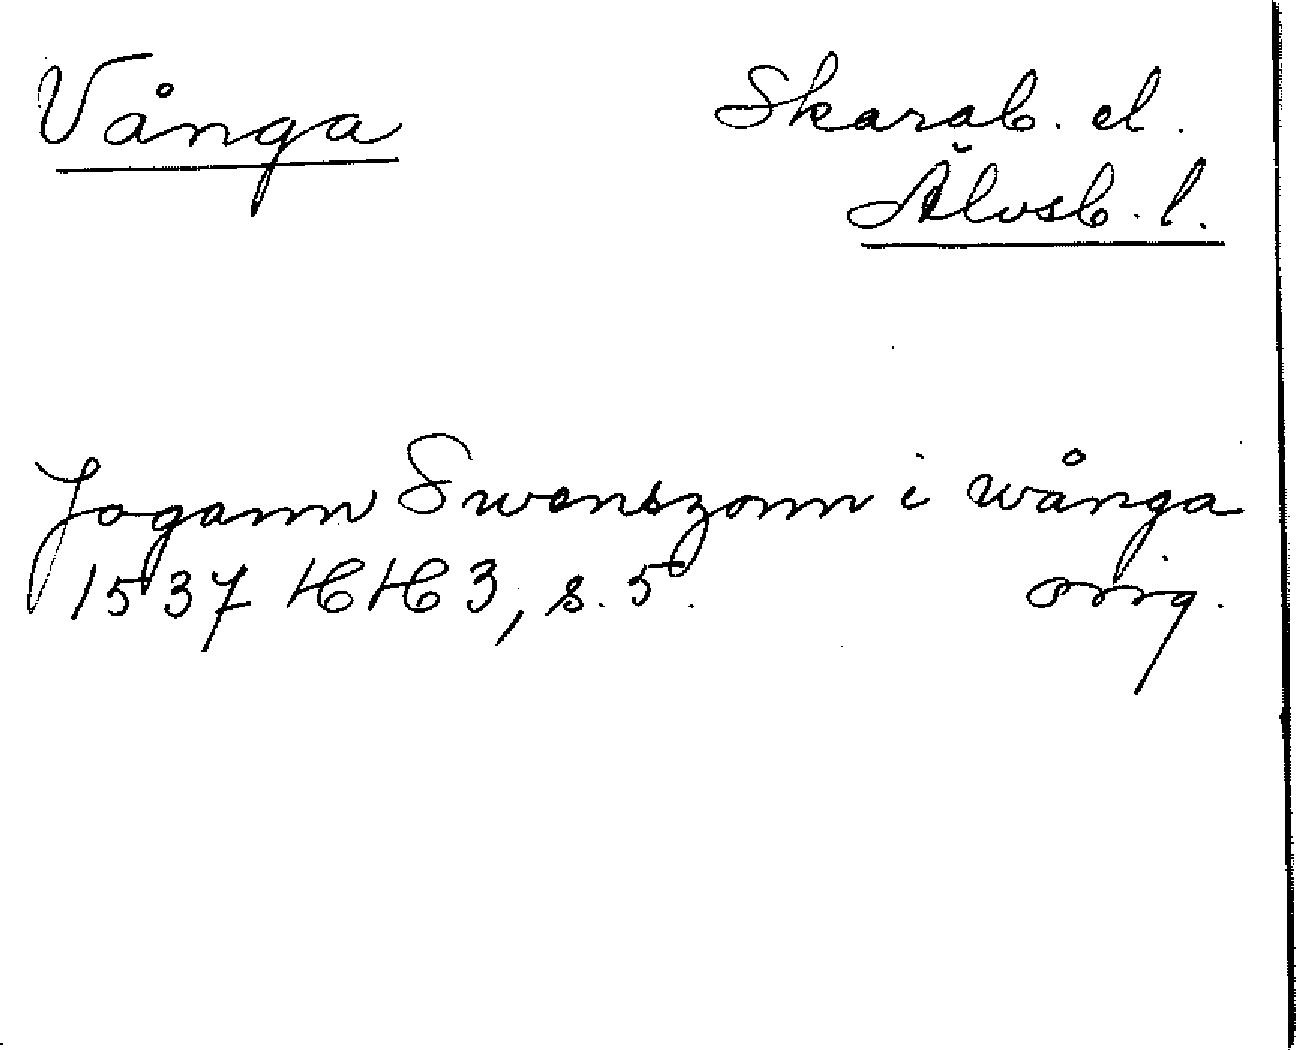 Vånga Skarab. el.
Älvsb. l.
Jogann Swenszonn i wånga
1537 HH 3, s. 5. orig.